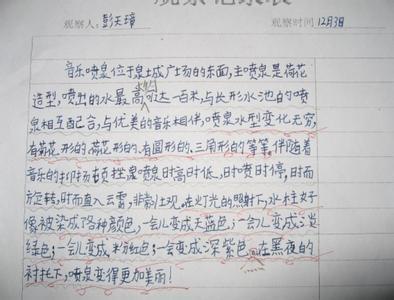 观察记录表
观察人：彭天璋 观察时间12月3日
音乐喷泉位于泉城广场的东面，主喷泉是荷花
造型，喷出的水最高可达一百米与长形水池的喷
泉相互配合，与优美的音乐相伴，喷泉水型变化无穷，
有荷花形的、有圆形的、三角形的等等，伴随着
音乐的抑扬顿挫喷泉时高时低，时喷时停，时而
旋转，时而直入云霄，非常壮观，在灯光的照射下，水柱好
像被染成了各种颜色，一会儿变成天蓝色，一会儿变成淡
绿色；一会儿变成粉红色；一会变成深紫色。在黑夜的
衬托下，喷泉变得更加美丽！